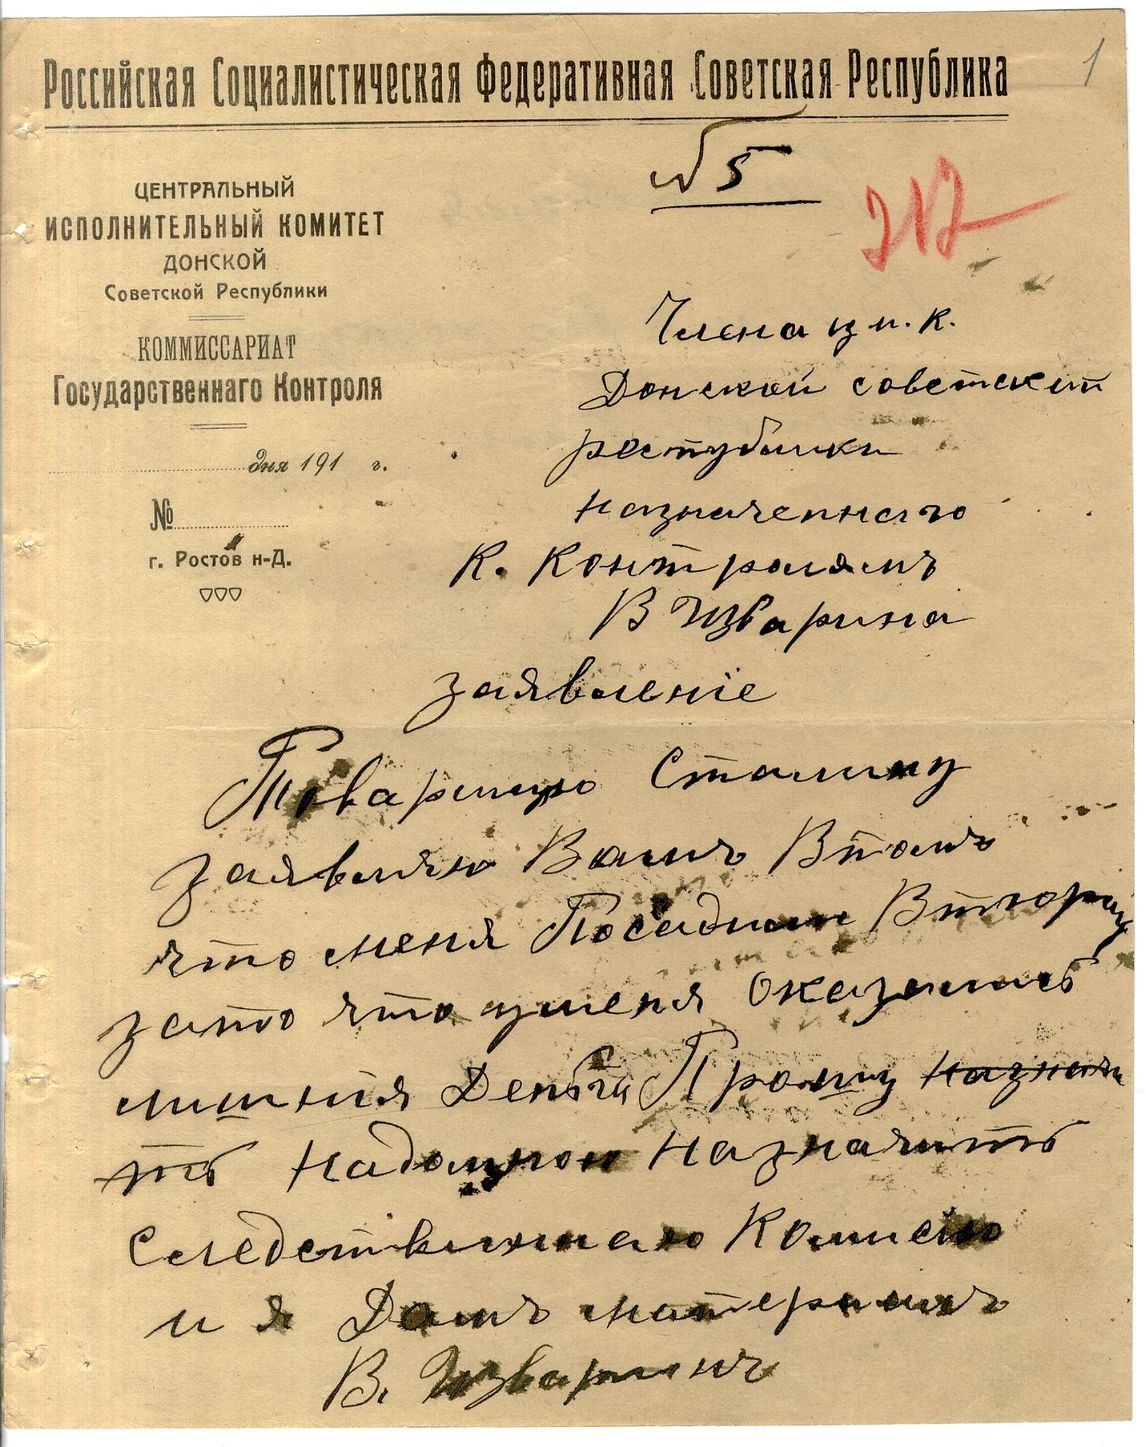 Российская Социалистическая Федеративная Советская Республика
1
№ 5
217
ЦЕНТРАЛЬНЫЙ
ИСПОЛНИТЕЛЬНЫЙ КОМИТЕТ
ДОНСКОЙ
Советской Республики
КОММИССАРИАТ
Государственнаго Контроля
дня 191 г.
№
г. Ростов н-Д.
Члена ц и. к.
Донской советской
республики
назначеннаго
К. Контролямъ
В Изварина
заявленіе
Товарищю Сталину
заявляю Вамъ Втомъ
что меня Посадили Втюрму
зато что уменя оказались
лишнія Деньги Прошу назначи
ть надомною назначить
следственаю Комисию
и я Дамъ матерьялъ
В. Изваринъ